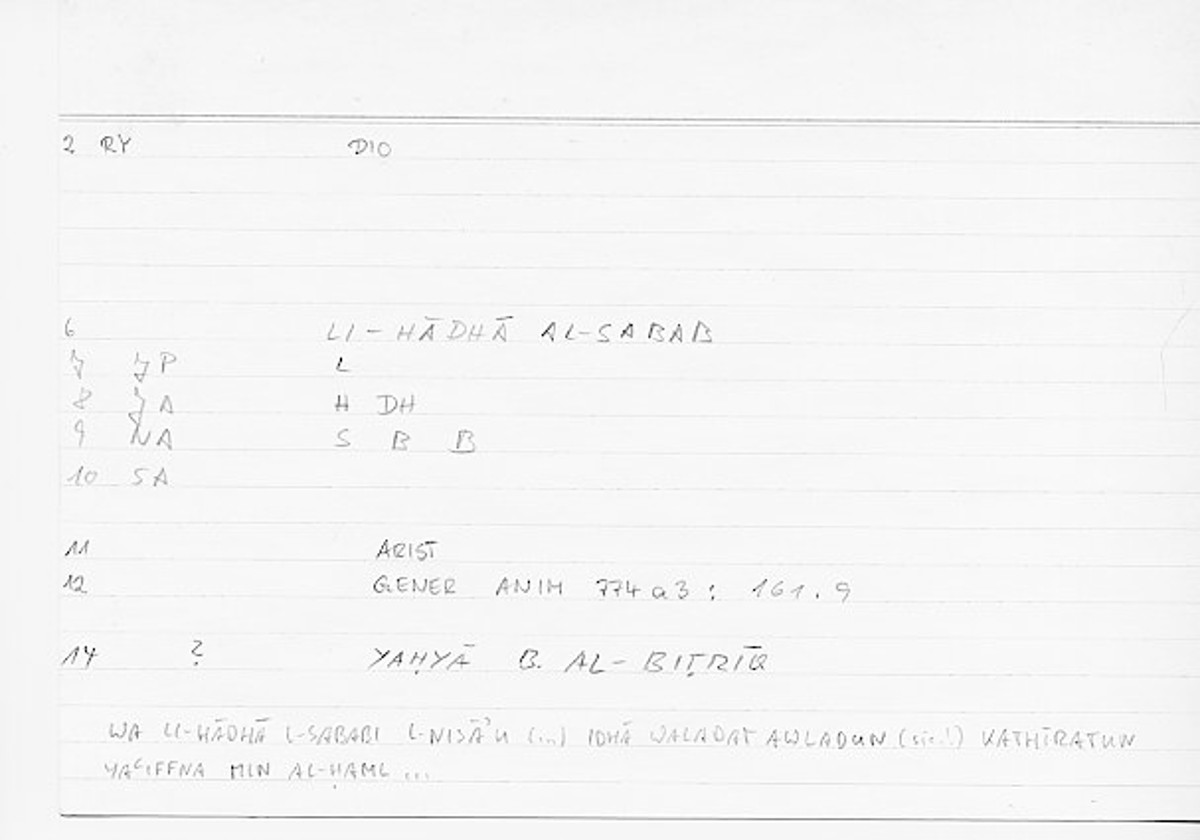 2 RY DIO
6 LI-HĀDHĀ AL-SABAB
7 JP L
8 JA H DH
9 NA S B B
10 SA
11 ARIST
12 GENER ANIM 774a3 : 161.9
14 ? YAḤYĀ B. AL-BIṬRĪQ
WA LI-HĀDHĀ L-SABABI L-NISĀʾU (...) IDHĀ WALADAT AWLADUN (sic!) KATHĪRATUN
YAʿIFFNA MIN AL-ḤAML ...